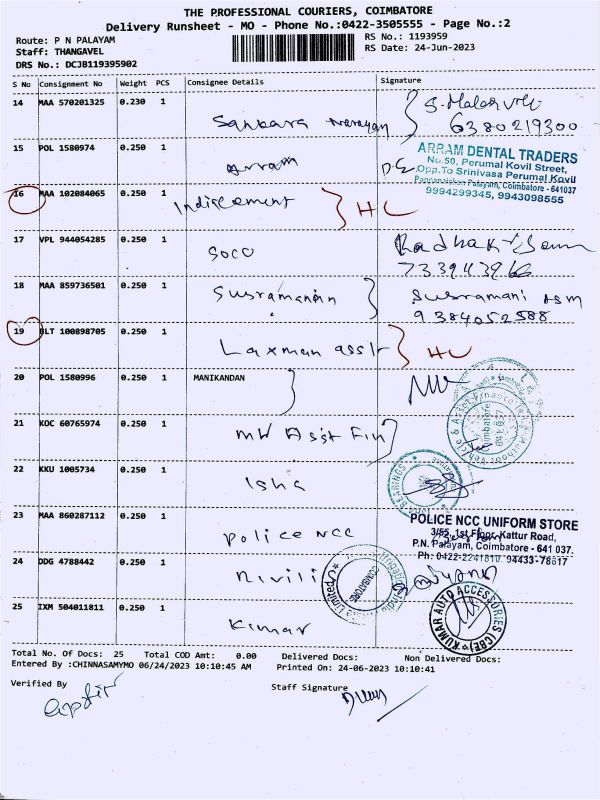 THE PROFESSIONAL COURIERS, COIMBATORE
Delivery Runsheet - MO - Phone No.:0422-3505555 - Page No.:2
Route: P N PALAYAM
Staff: THANGAVEL
DRS No.: DCJB119395902
RS No.: 1193959
RS Date: 24-Jun-2023
S No Consignment No Weight PCS Consignee Details Signature
14 MAA 570201325 0.230 1 Sankara Narayan
6380219300
15 POL 1580974 0.250 1 Arram
ARRAM DENTAL TRADERS
No.50, Perumal Kovil Street,
Opp.To Srinivasa Perumal Kovil
Pappanaicken Palayam, Coimbatore - 641037
9994299345, 9943098555
16 MAA 102084065 0.250 1
17 VPL 944054285 0.250 1 SOCO
18 MAA 859736501 0.250 1 Susramanian Susramani
9384052588
19 BLT 100898705 0.250 1 Laxman asst
20 POL 1580996 0.250 1 MANIKANDAN
21 KOC 60765974 0.250 1 MW Asst Fin
22 KKU 1005734 0.250 1 Isha
BEARINGS
23 MAA 860287112 0.250 1 Police NCC
POLICE NCC UNIFORM STORE
3/55, 1st Floor, Kattur Road,
P.N. Palayam, Coimbatore - 641 037.
Ph: 0422-2241810, 94433-78617
24 DDG 4788442 0.250 1 Nivili
COIMBATORE
25 IXM 504011811 0.250 1 Kimar
KUMAR AUTO ACCESSORIES (CBE)
Total No. Of Docs: 25 Total COD Amt: 0.00 Delivered Docs: Non Delivered Docs:
Entered By :CHINNASAMYMO 06/24/2023 10:10:45 AM Printed On: 24-06-2023 10:10:41
Verified By Staff Signature